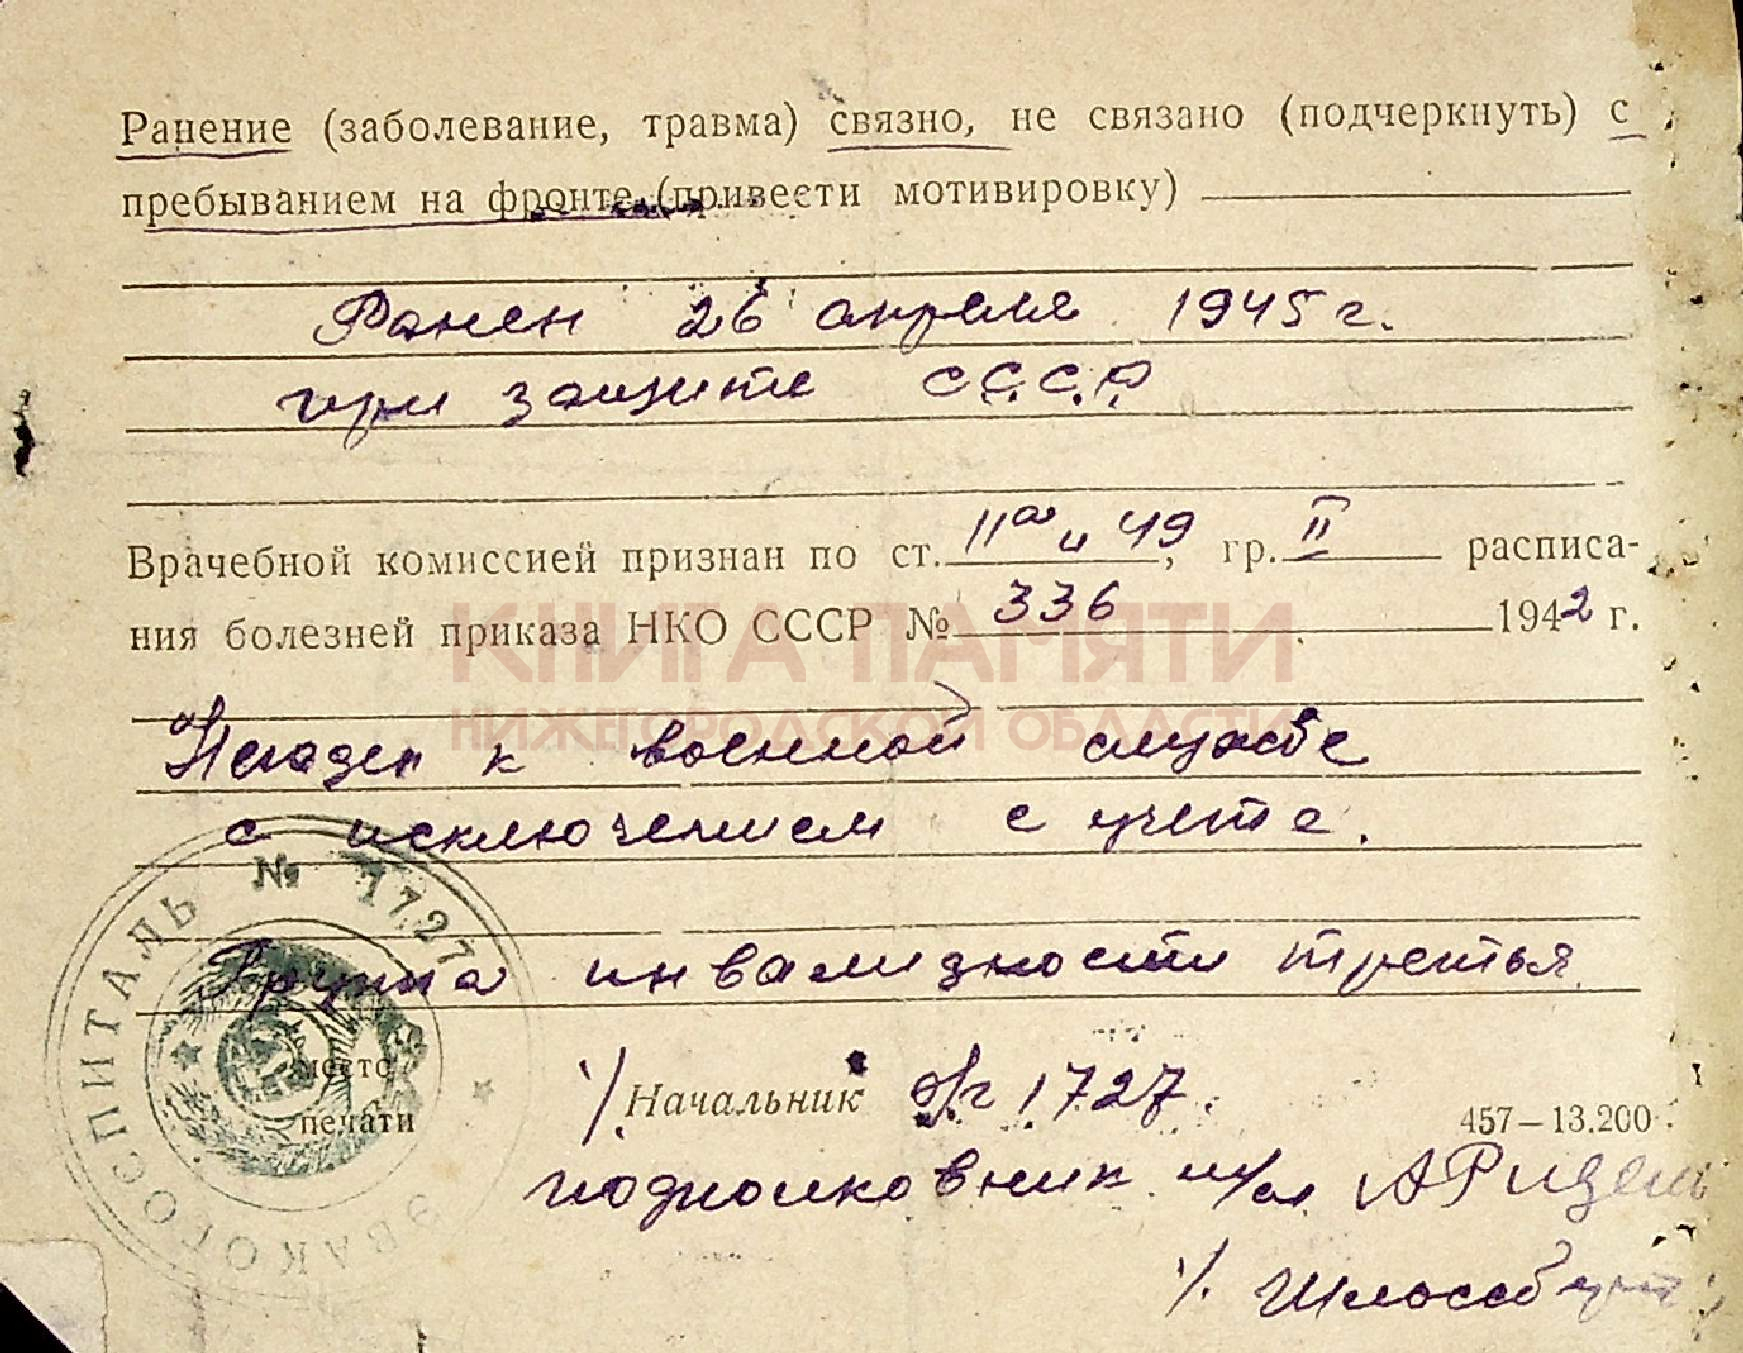 Ранение (заболевание, травма) связно, не связано (подчеркнуть) с
пребыванием на фронте (привести мотивировку)
Ранен 26 апреля 1945 г.
при защите С.С.С.Р.
Врачебной комиссией признан по ст. 11а и 49, гр. II расписа-
ния болезней приказа НКО СССР № 336 1942 г.
КНИГА ПАМЯТИ
НИЖЕГОРОДСКОЙ ОБЛАСТИ
Негоден к военной службе
с исключением с учета.
Группа инвалидности третья
ЭВАКОГОСПИТАЛЬ № 1727
место
печати
Начальник э/г 1727.
457—13.200
подполковник м/сл